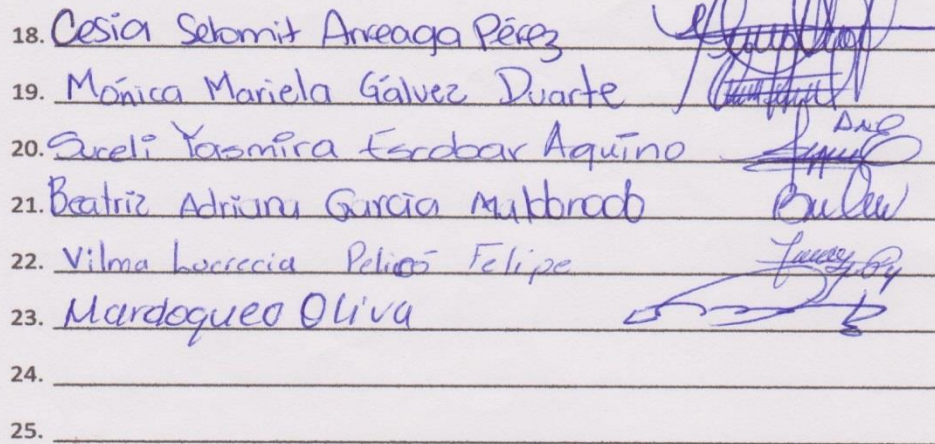 18. Cesia Selomit Arreaga Pérez
19. Mónica Mariela Gálvez Duarte
20. Sureli Yasmira Escobar Aquino
21. Beatriz Adriana García Maldonado
22. Vilma Lucrecia Felipe
23. Mardoqueo Oliva
24.
25.